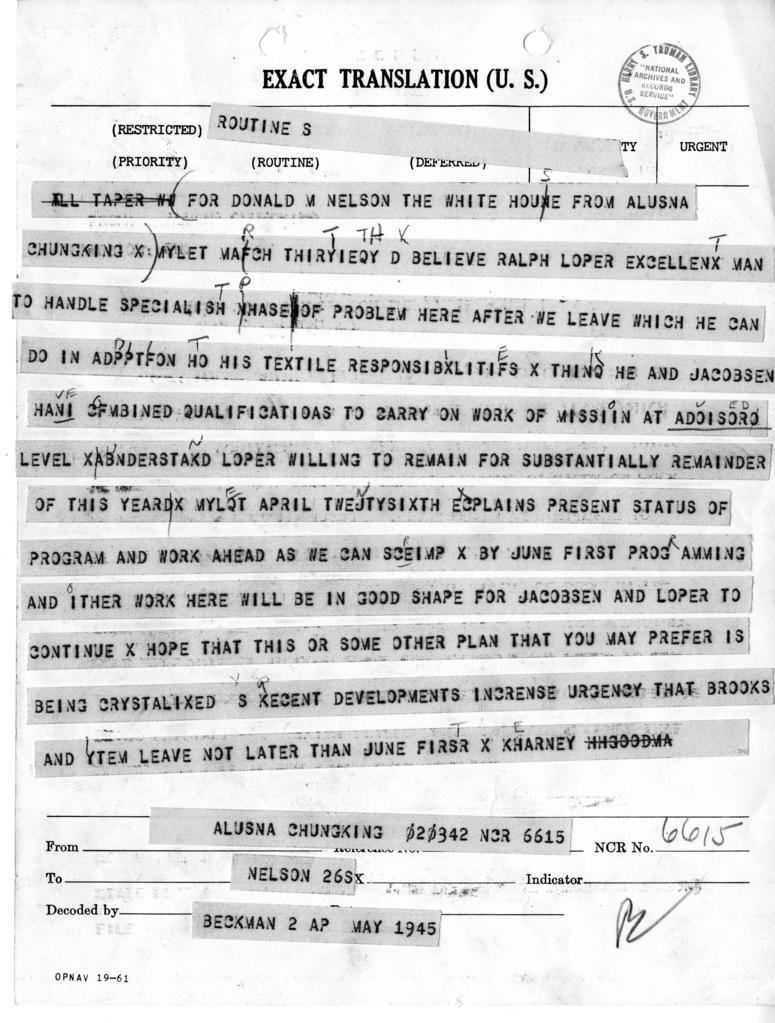 EXACT TRANSLATION (U. S.)
HARRY S. TRUMAN LIBRARY
"NATIONAL
ARCHIVES AND
RECORDS
SERVICE"
U.S. GOVERNMENT
(RESTRICTED) ROUTINE S
TY URGENT
(PRIORITY) (ROUTINE) (DEFERRED)
S
ALL TAPER WW (FOR DONALD M NELSON THE WHITE HOUNE FROM ALUSNA
R T TH K T
CHUNGKING X)MYLET MAFCH THIRYIEQY D BELIEVE RALPH LOPER EXCELLENX MAN
T P
TO HANDLE SPECIALISH NHASE OF PROBLEM HERE AFTER WE LEAVE WHICH HE CAN
D I I T I E K
DO IN ADPPTFON HO HIS TEXTILE RESPONSIBXLITIFS X THINQ HE AND JACOBSEN
VE O O V ED
HANI CFMBINED QUALIFICATIOAS TO CARRY ON WORK OF MISSIIN AT ADOISORO
N
LEVEL XABNDERSTAKD LOPER WILLING TO REMAIN FOR SUBSTANTIALLY REMAINDER
E N X
OF THIS YEARDX MYLQT APRIL TWEJTYSIXTH ECPLAINS PRESENT STATUS OF
R R
PROGRAM AND WORK AHEAD AS WE CAN SCEIMP X BY JUNE FIRST PROG AMMING
O
AND ITHER WORK HERE WILL BE IN GOOD SHAPE FOR JACOBSEN AND LOPER TO
CONTINUE X HOPE THAT THIS OR SOME OTHER PLAN THAT YOU MAY PREFER IS
X R
BEING CRYSTALIXED S KECENT DEVELOPMENTS INCRENSE URGENCY THAT BROOKS
T E
AND YTEM LEAVE NOT LATER THAN JUNE FIRSR X KHARNEY HH300DMA
From ALUSNA CHUNGKING 020342 NCR 6615 NCR No. 6615
To NELSON 26SX Indicator
Decoded by BECKMAN 2 AP MAY 1945
OPNAV 19-61